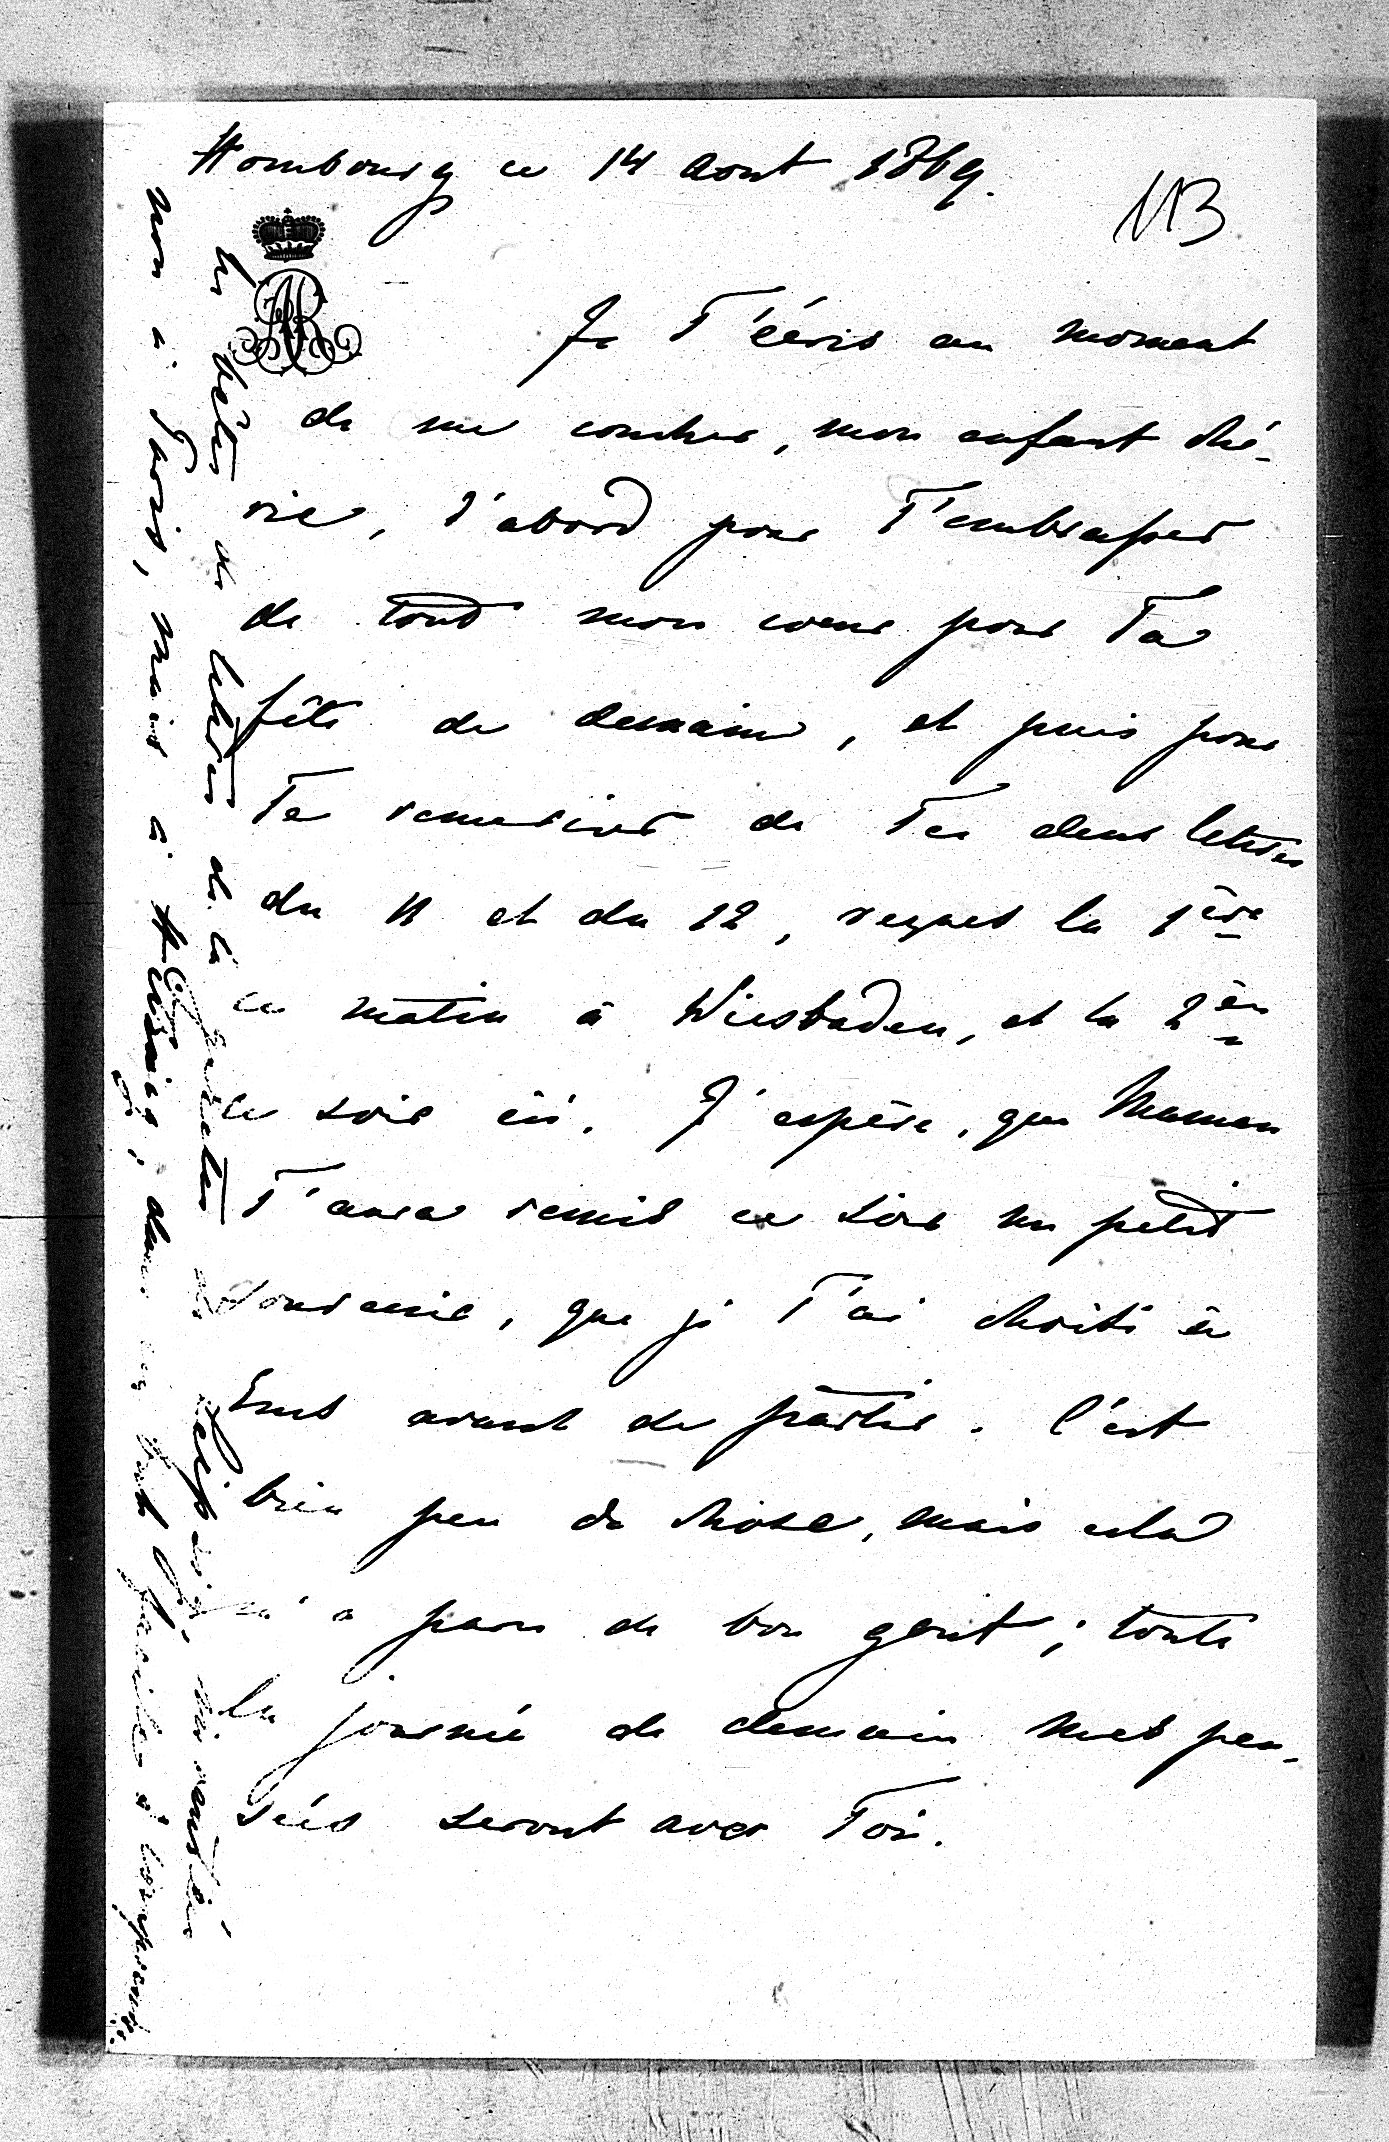 Hombourg ce 14 aout 1869.
113
Je T'écris au moment
de me coucher, mon enfant ché-
rie, d'abord pour T'embrasser
de tout mon coeur pour Ta
fête de demain, et puis pour
Te remercier de Tes deux lettres
du 11 et du 12, reçues la 1ère
ce matin à Wiesbaden, et la 2de
ce soir ici. J'espère, que Maman
T'aura remis ce soir un petit
souvenir, que je T'ai choisi à
Ems avant de partir. C'est
bien peu de chose, mais cela
m'a paru de bon goût; toute
la journée de demain mes pen-
sées seront avec Toi.
les fêtes de
non à Paris, mais à